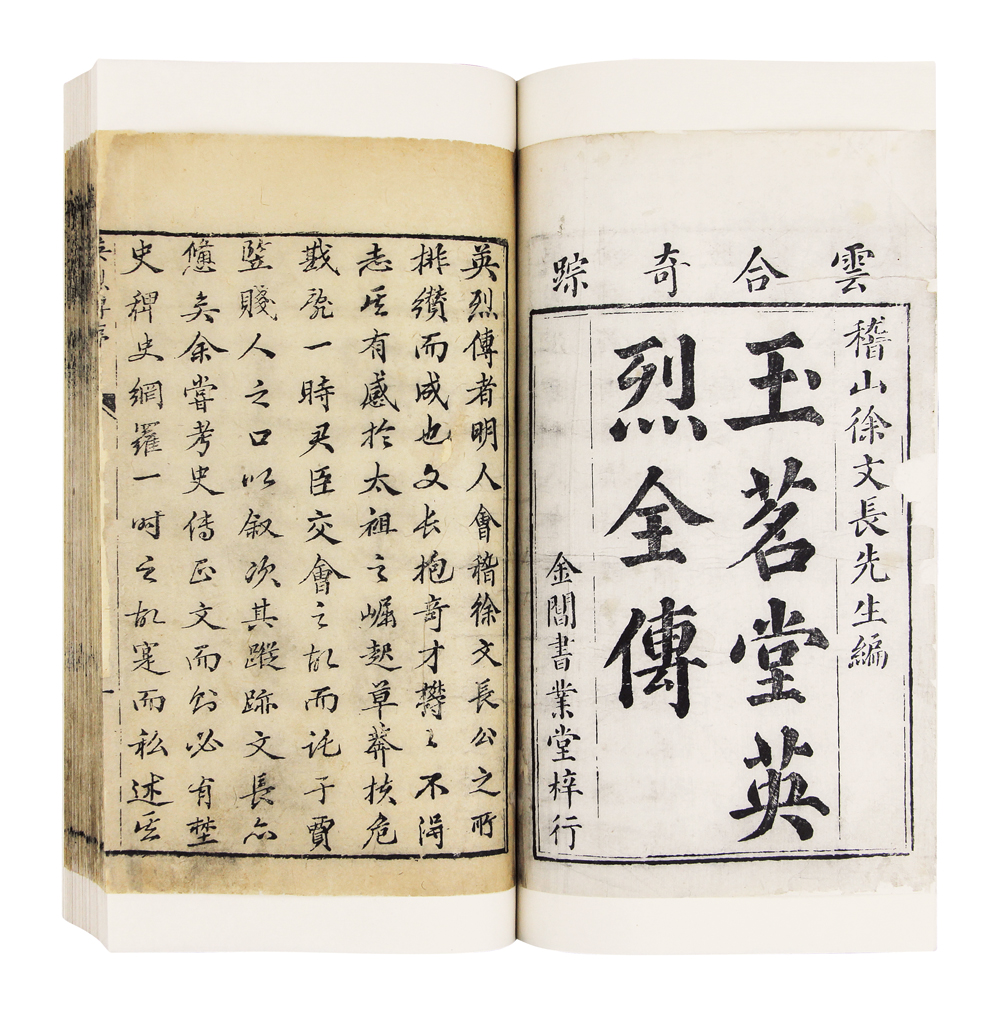 雲合奇踪
稽山徐文長先生編
玉茗堂英
烈全傳
金閶書業堂梓行
英烈傳者明人會稽徐文長公之所
排纘而成也文长抱奇才欝〻不淂
志其有感於太祖之崛起草莽扶危
戡乱一時君臣交會之故而託于賈
豎賤人之口以叙次其蹤跡文長亦
矣余嘗考史傳正文而外必有埜
史稗史網羅一时之故寔而私述其
英烈傳序
一